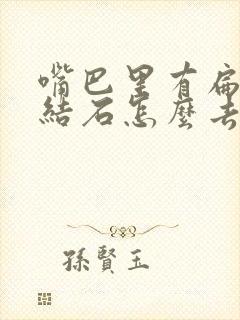 嘴巴里有扁
結石怎麼去
孫賢玉